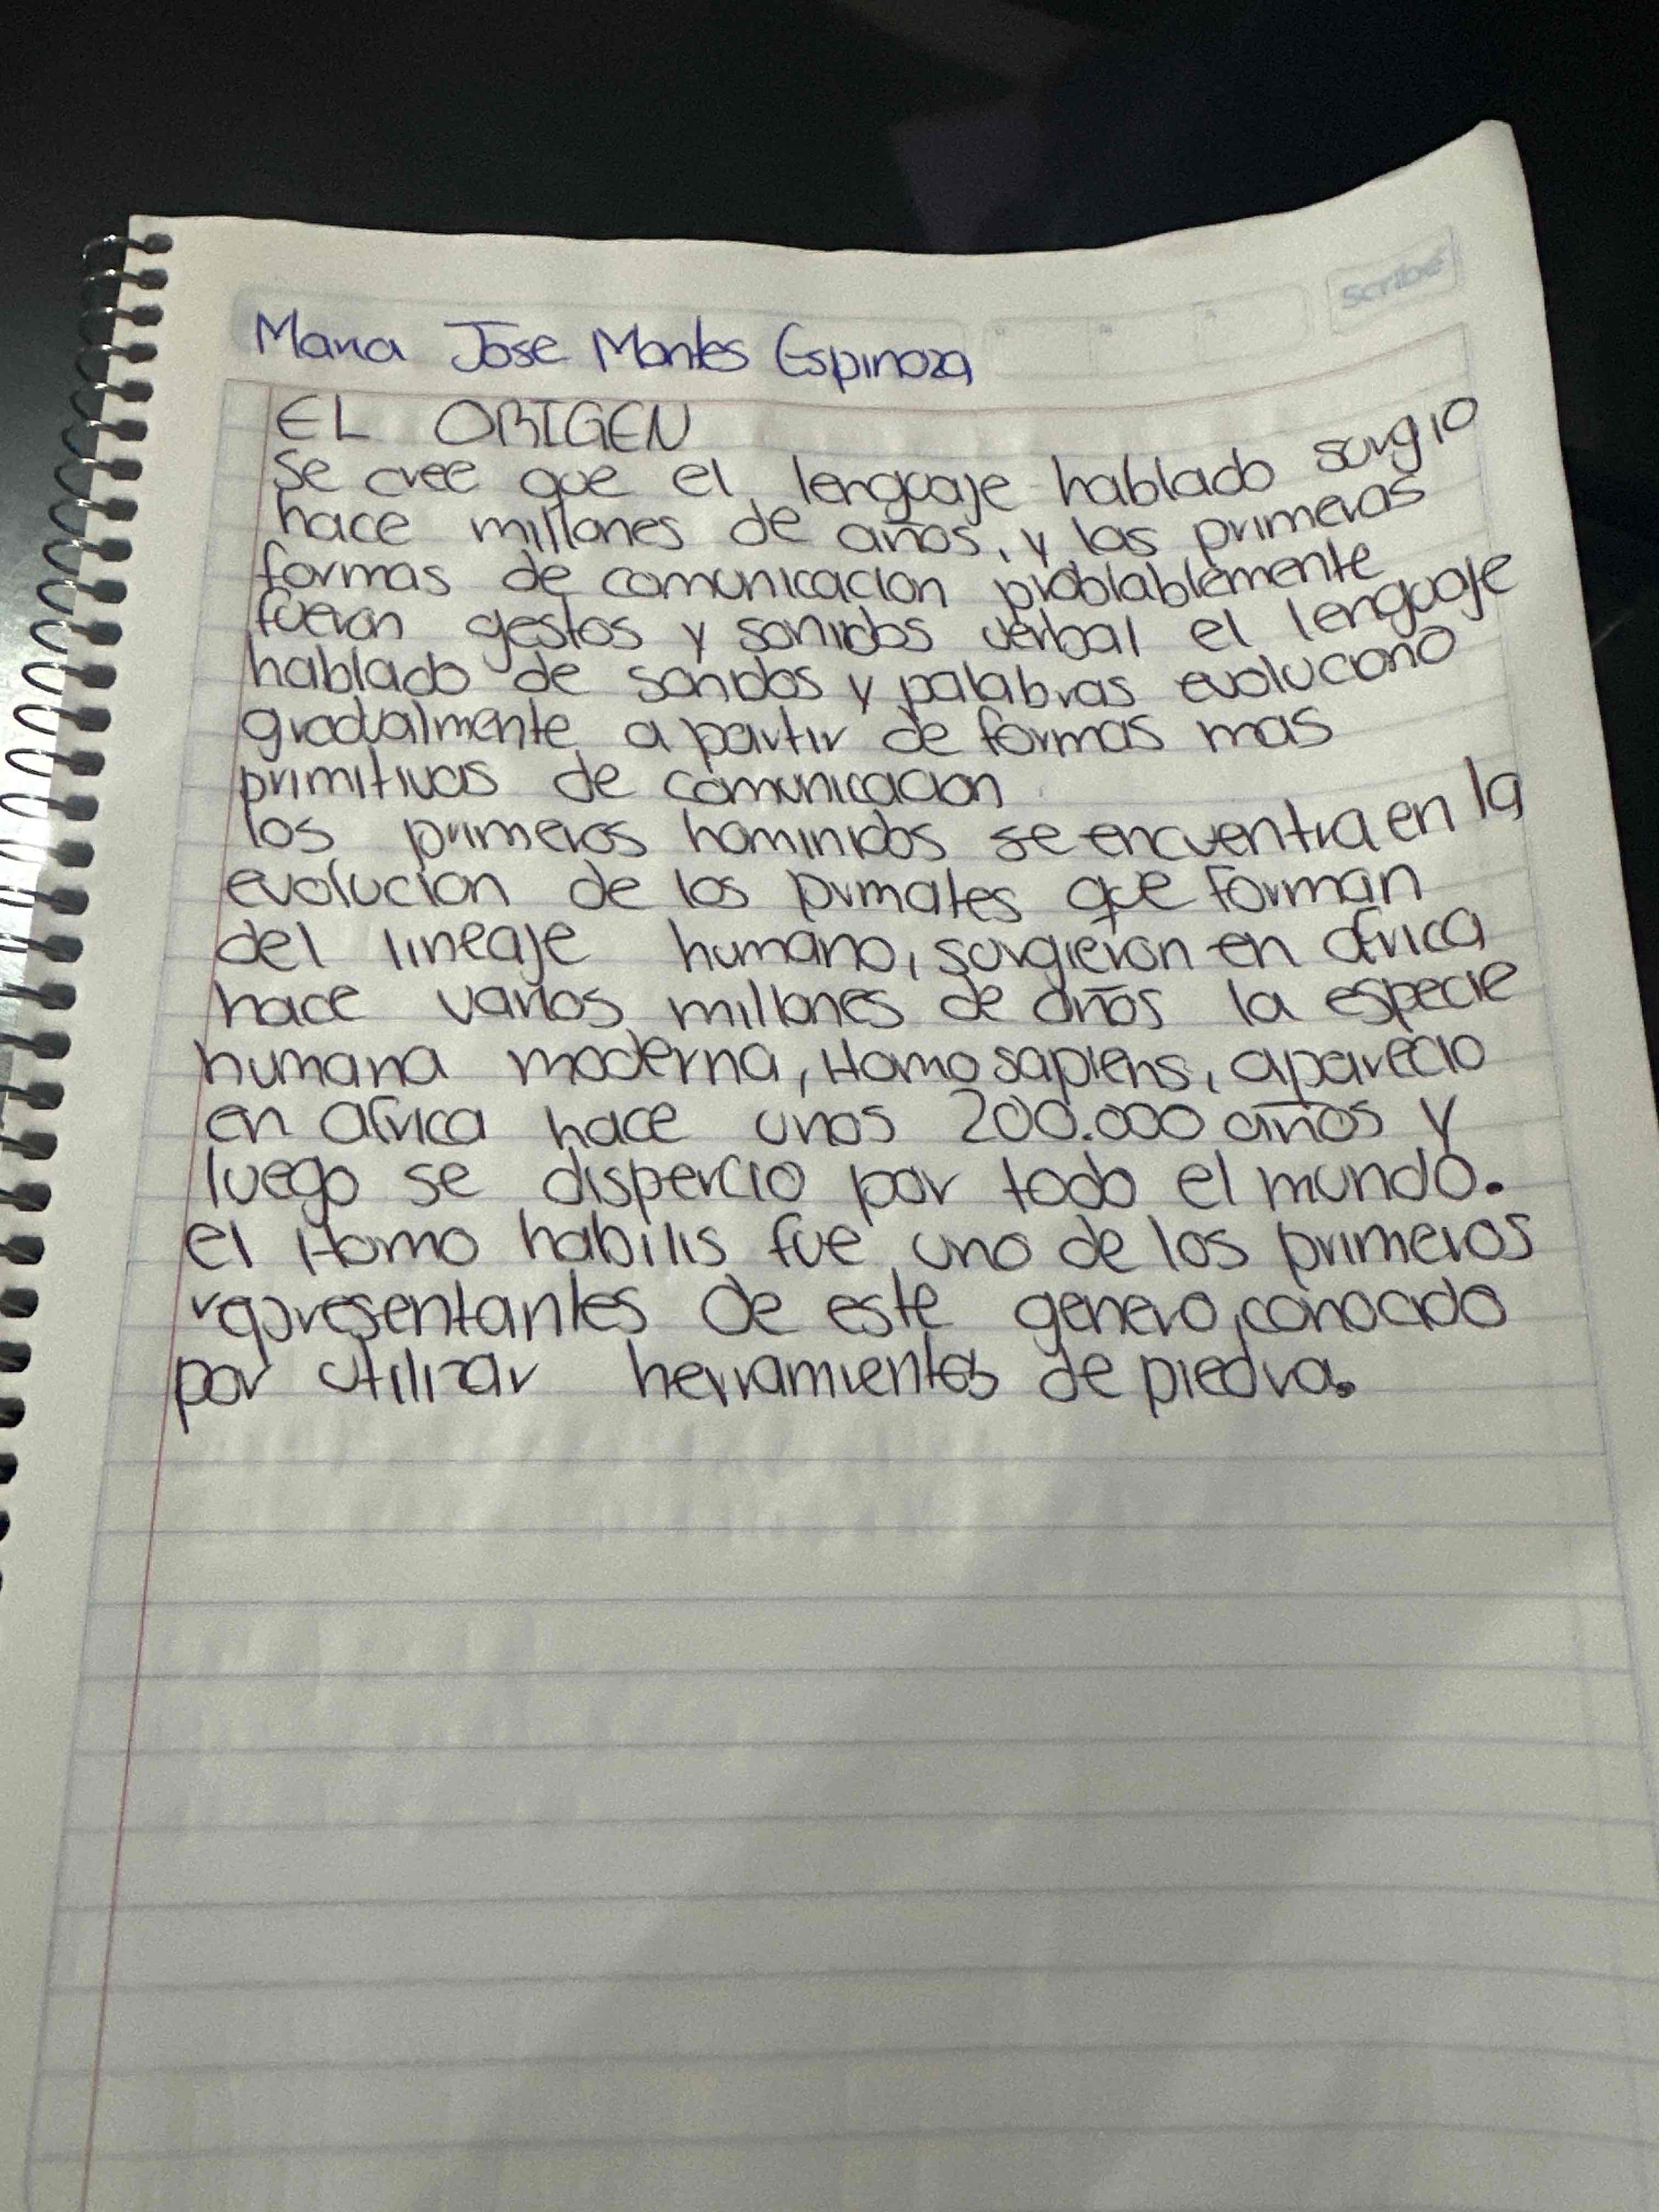 Scribe
Maria Jose Montes Espinoza
EL ORIGEN
Se cree que el lenguaje hablado surgio
hace millones de años, y las primeras
formas de comunicacion problablemente
fueron gestos y sonidos verbal el lenguaje
hablado de sonidos y palabras evoluciono
gradualmente a partir de formas mas
primitivas de comunicacion
los primeros hominidos se encuentra en la
evolucion de los primates que forman
del lineaje humano, surgieron en africa
hace varios millones de años la especie
humana moderna, Homo sapiens, aparecio
en africa hace unos 200.000 años y
luego se dispercio por todo el mundo.
el Homo habilis fue uno de los primeros
representantes de este genero, conocido
por utilizar herramientas de piedra.